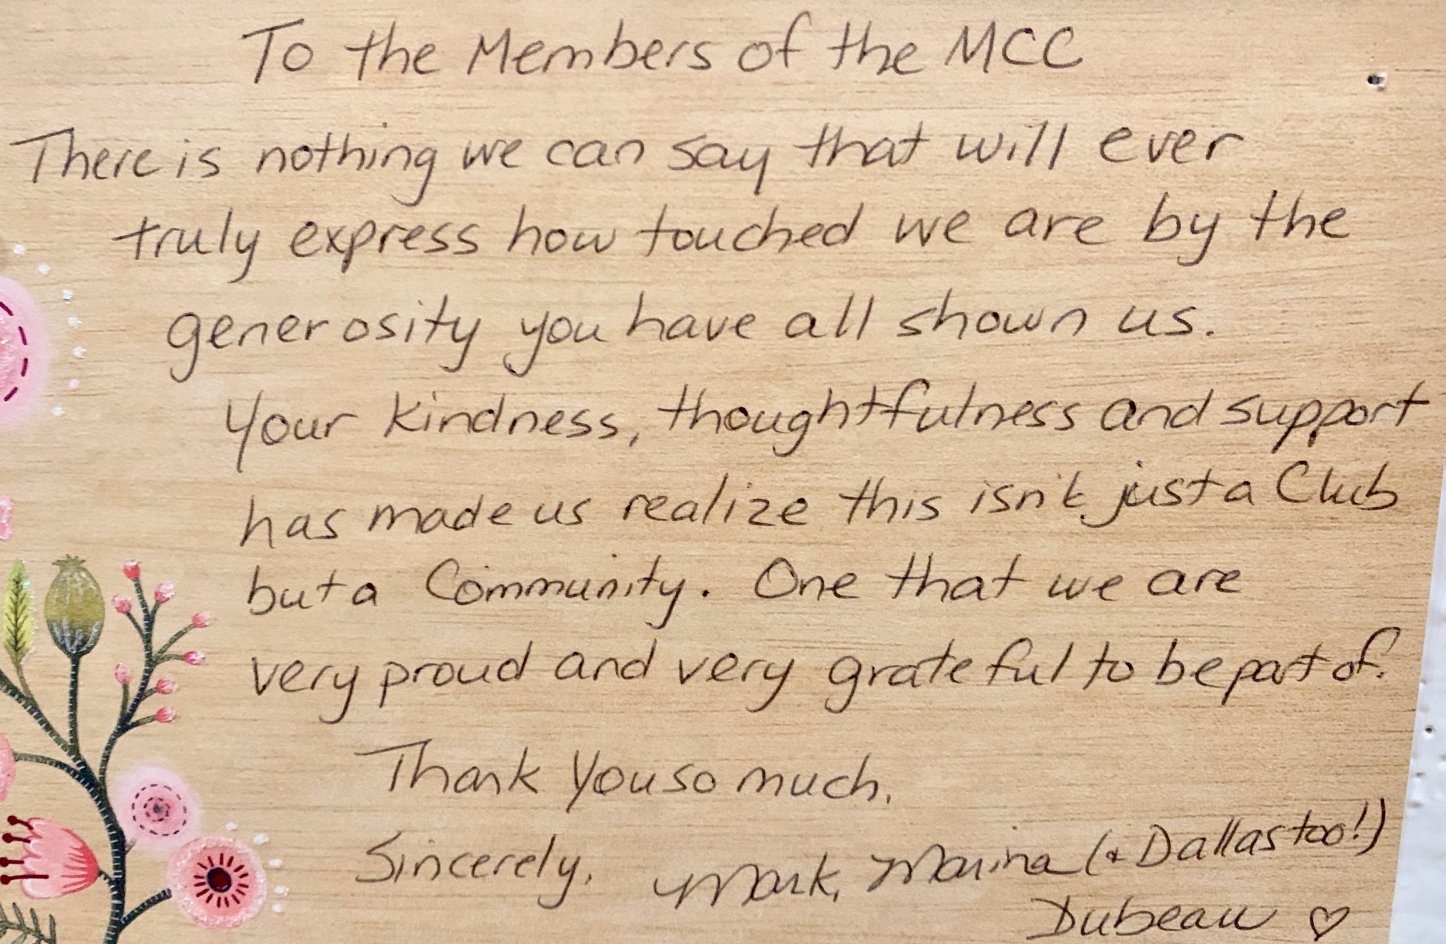 To the Members of the MCC
There is nothing we can say that will ever
truly express how touched we are by the
generosity you have all shown us.
Your kindness, thoughtfulness and support
has made us realize this isn't just a Club
but a Community. One that we are
very proud and very grateful to be part of.
Thank you so much.
Sincerely, Mark, Marina (& Dallas too!)
Dubeau ♡